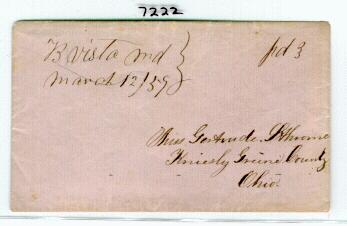 7222
B vista md
March 12/59
pd 3
Miss Gertrude
Kniesly Greene County
Ohio